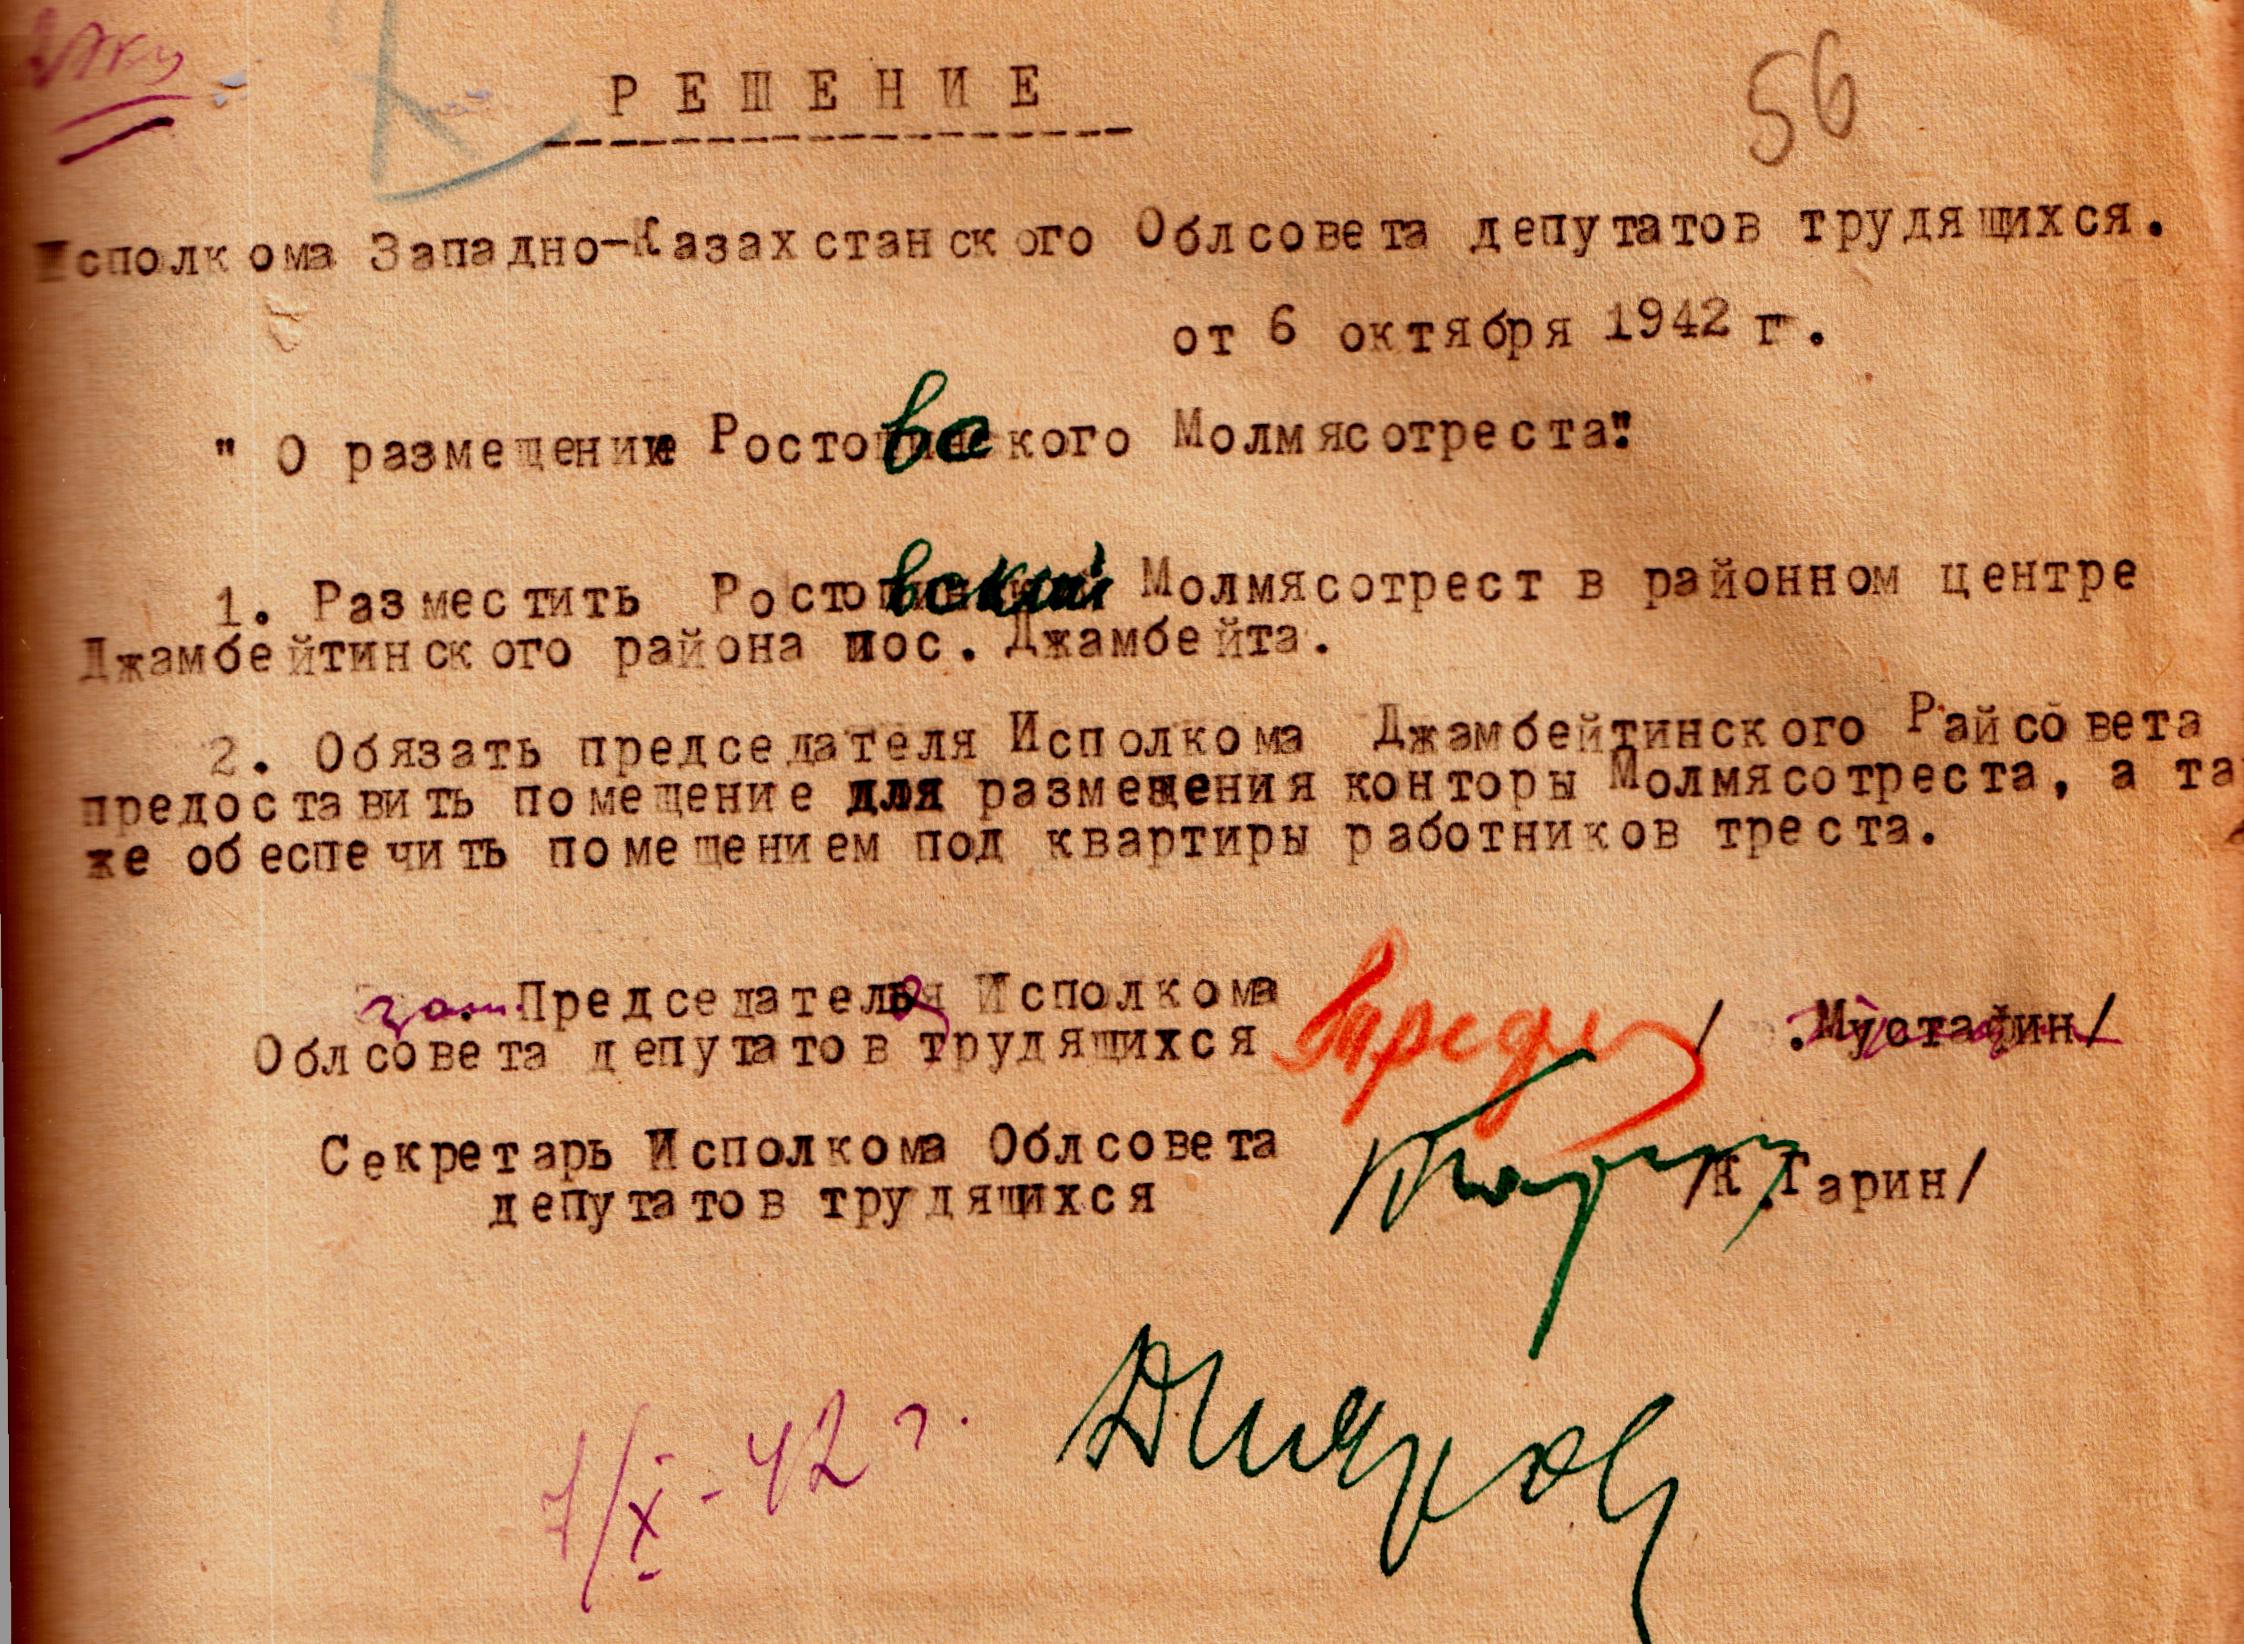 56
РЕШЕНИЕ
Исполкома Западно-Казахстанского Облсовета депутатов трудящихся.
от 6 октября 1942 г.
" О размещение Ростовского Молмясотреста".
1. Разместить Ростовский Молмясотрест в районном центре
Джамбейтинского района пос. Джамбейта.
2. Обязать председателя Исполкома Джамбейтинского Райсовета
предоставить помещение для размещения конторы Молмясотреста, а та
же обеспечить помещением под квартиры работников треста.
зам. Председателя Исполкома / .Мустафин/
Облсовета депутатов трудящихся
Секретарь Исполкома Облсовета /К.Гарин/
депутатов трудящихся
7/X-42 г.